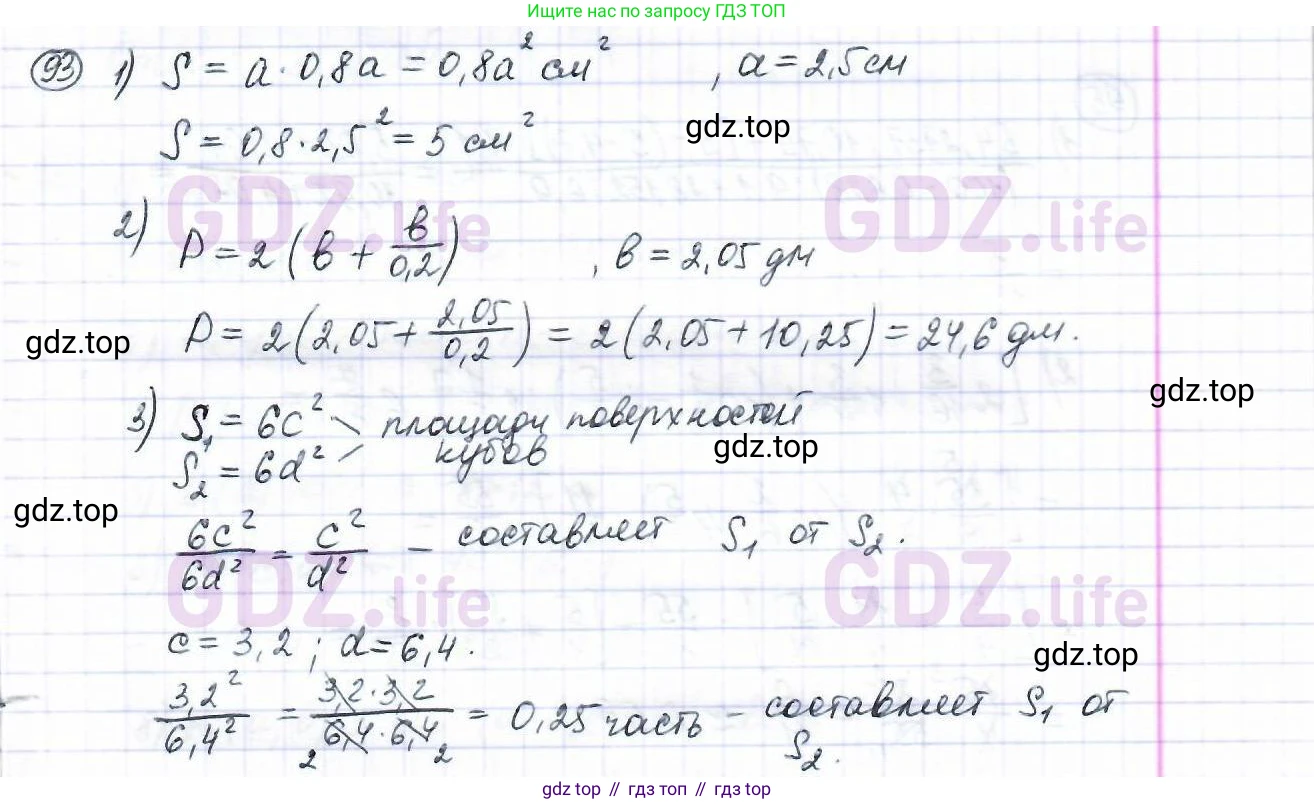 Ищите нас по запросу ГДЗ ТОП
93 1) S = a · 0,8a = 0,8a² см² , a = 2,5 см
gdz.top
S = 0,8 · 2,5² = 5 см²
GDZ.life GDZ.life
2) P = 2 (в + в/0,2) , в = 2,05 дм
P = 2 (2,05 + 2,05/0,2) = 2 (2,05 + 10,25) = 24,6 дм.
gdz.top
gdz.top
3) S₁ = 6c² площади поверхностей
S₂ = 6d² кубов
gdz.top
gdz.top
6c²/6d² = c²/d² – составляет S₁ от S₂.
GDZ.life GDZ.life
c = 3,2 ; d = 6,4.
gdz.top
3,2²/6,4² = 3,2 · 3,2/6,4 · 6,4 = 0,25 часть – составляет S₁ от
2 2
S₂.
gdz.top // gdz.top // gdz.top